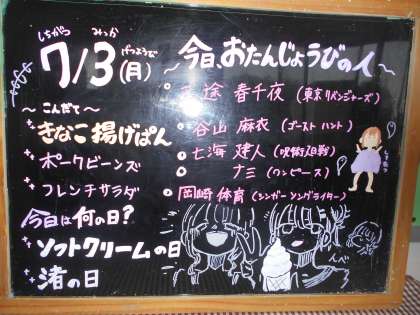 しちがつ みっか げつようび
7/3(月)
〜こんだて〜
きなこ揚げぱん
ポークビーンズ
フレンチサラダ
今日は何の日?
ソフトクリームの日
渚の日
〜今日、おたんじょうびの人〜
途 春千夜 (東京リベンジャーズ)
谷山 麻衣 (ゴーストハント)
七海 建人 (呪術廻戦)
ナミ (ワンピース)
岡崎 体育 (シンガーソングライター)